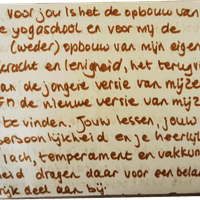 voor jou is het de opbouw van
e yogaschool en voor mij de
(weder) opbouw van mijn eigen
kracht en lenigheid, het terugvi
an de jongere versie van mijze
En de nieuwe versie van mijz
te vinden. Jouw lessen, jouw
persoonlijkheid en je heerlijk
lach, temperament en vakkun
heid dragen daar voor een belan
rijk deel aan bij.